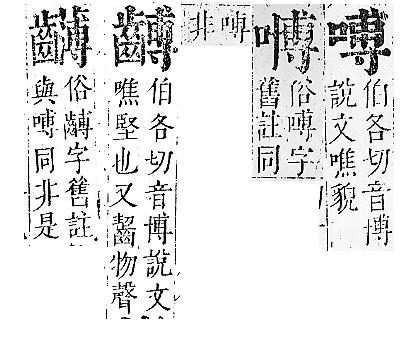 㗘
伯各切音博
說文噍貌
俗㗘字
舊註同
㗘
非
伯各切音博說文
噍堅也又齧物聲
俗字舊註
與㗘同非是